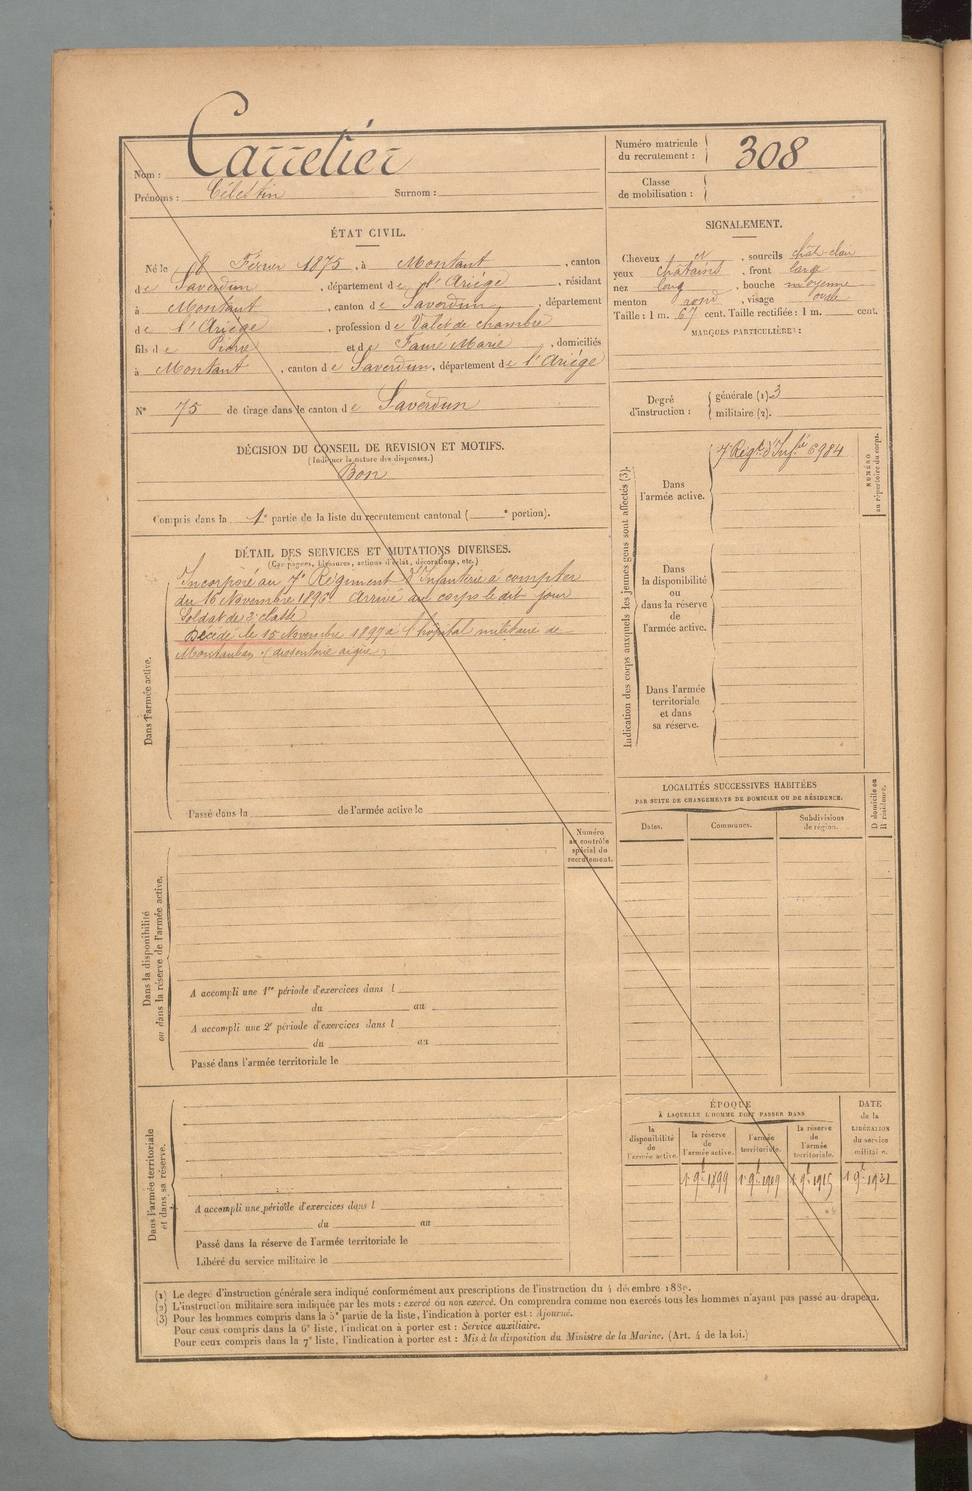 Nom : Carretier
Prénoms : Célestin Surnom :
Numéro matricule du recrutement : 308
Classe de mobilisation :
ÉTAT CIVIL.
Né le 18 Février 1875, à Montaut, canton
de Saverdun, département de l'Ariège, résidant
à Montaut, canton de Saverdun, département
de l'Ariège, profession de Valet de chambre
fils de Pierre et de Faure Marie, domiciliés
à Montaut, canton de Saverdun, département de l'Ariège
N° 75 de tirage dans le canton de Saverdun
SIGNALEMENT.
Cheveux et, sourcils chât-clair
yeux châtains, front large
nez long, bouche moyenne
menton rond, visage ovale
Taille : 1 m. 67 cent. Taille rectifiée : 1 m. cent.
MARQUES PARTICULIÈRES :
Degré d'instruction : générale (1) 3
militaire (2).
DÉCISION DU CONSEIL DE REVISION ET MOTIFS.
(Indiquer la nature des dispenses.)
Bon
Compris dans la 1e partie de la liste du recrutement cantonal ( e portion).
DÉTAIL DES SERVICES ET MUTATIONS DIVERSES.
(Campagnes, blessures, actions d'éclat, décorations, etc.)
Dans l'armée active.
Incorporé au 7e Régiment d'Infanterie à compter
du 16 Novembre 1896. Arrivé au corps le dit jour
Soldat de 2e classe
Décédé le 15 Novembre 1897 à l'hôpital militaire de
Montauban (dissenterie aigüe)
Passé dans la de l'armée active le
Indication des corps auxquels les jeunes gens sont affectés (3).
Dans l'armée active.
7e Régt d'Infie 6984
NUMÉRO au répertoire du corps.
Dans
la disponibilité
ou
dans la réserve
de
l'armée active.
Dans l'armée
territoriale
et dans
sa réserve.
LOCALITÉS SUCCESSIVES HABITÉES
PAR SUITE DE CHANGEMENTS DE DOMICILE OU DE RÉSIDENCE.
Dates. Communes. Subdivisions de région.
D domicile ou R résidence.
Numéro
au contrôle
spécial du
recrutement.
Dans la disponibilité
ou dans la réserve de l'armée active.
A accompli une 1re période d'exercices dans l
du au
A accompli une 2e période d'exercices dans l
du au
Passé dans l'armée territoriale le
Dans l'armée territoriale
et dans sa réserve.
A accompli une période d'exercices dans l
du au
Passé dans la réserve de l'armée territoriale le
Libéré du service militaire le
ÉPOQUE
À LAQUELLE L'HOMME DOIT PASSER DANS
la disponibilité de l'armée active.
la réserve de l'armée active.
l'armée territoriale.
la réserve de l'armée territoriale.
DATE de la LIBÉRATION du service militaire.
1er 9bre 1899 1er 9bre 1909 1er 9bre 1915 1er 9bre 1921
(1) Le degré d'instruction générale sera indiqué conformément aux prescriptions de l'instruction du 4 décembre 1889.
(2) L'instruction militaire sera indiquée par les mots : exercé ou non exercé. On comprendra comme non exercés tous les hommes n'ayant pas passé au drapeau.
(3) Pour les hommes compris dans la 5e partie de la liste, l'indication à porter est : Ajourné.
Pour ceux compris dans la 6e liste, l'indication à porter est : Service auxiliaire.
Pour ceux compris dans la 7e liste, l'indication à porter est : Mis à la disposition du Ministre de la Marine. (Art. 4 de la loi.)